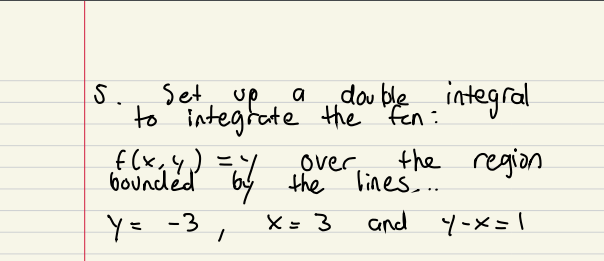 5. Set up a double integral
to integrate the fcn:
f(x,y) = y over the region
bounded by the lines...
y = -3, x = 3 and y-x = 1